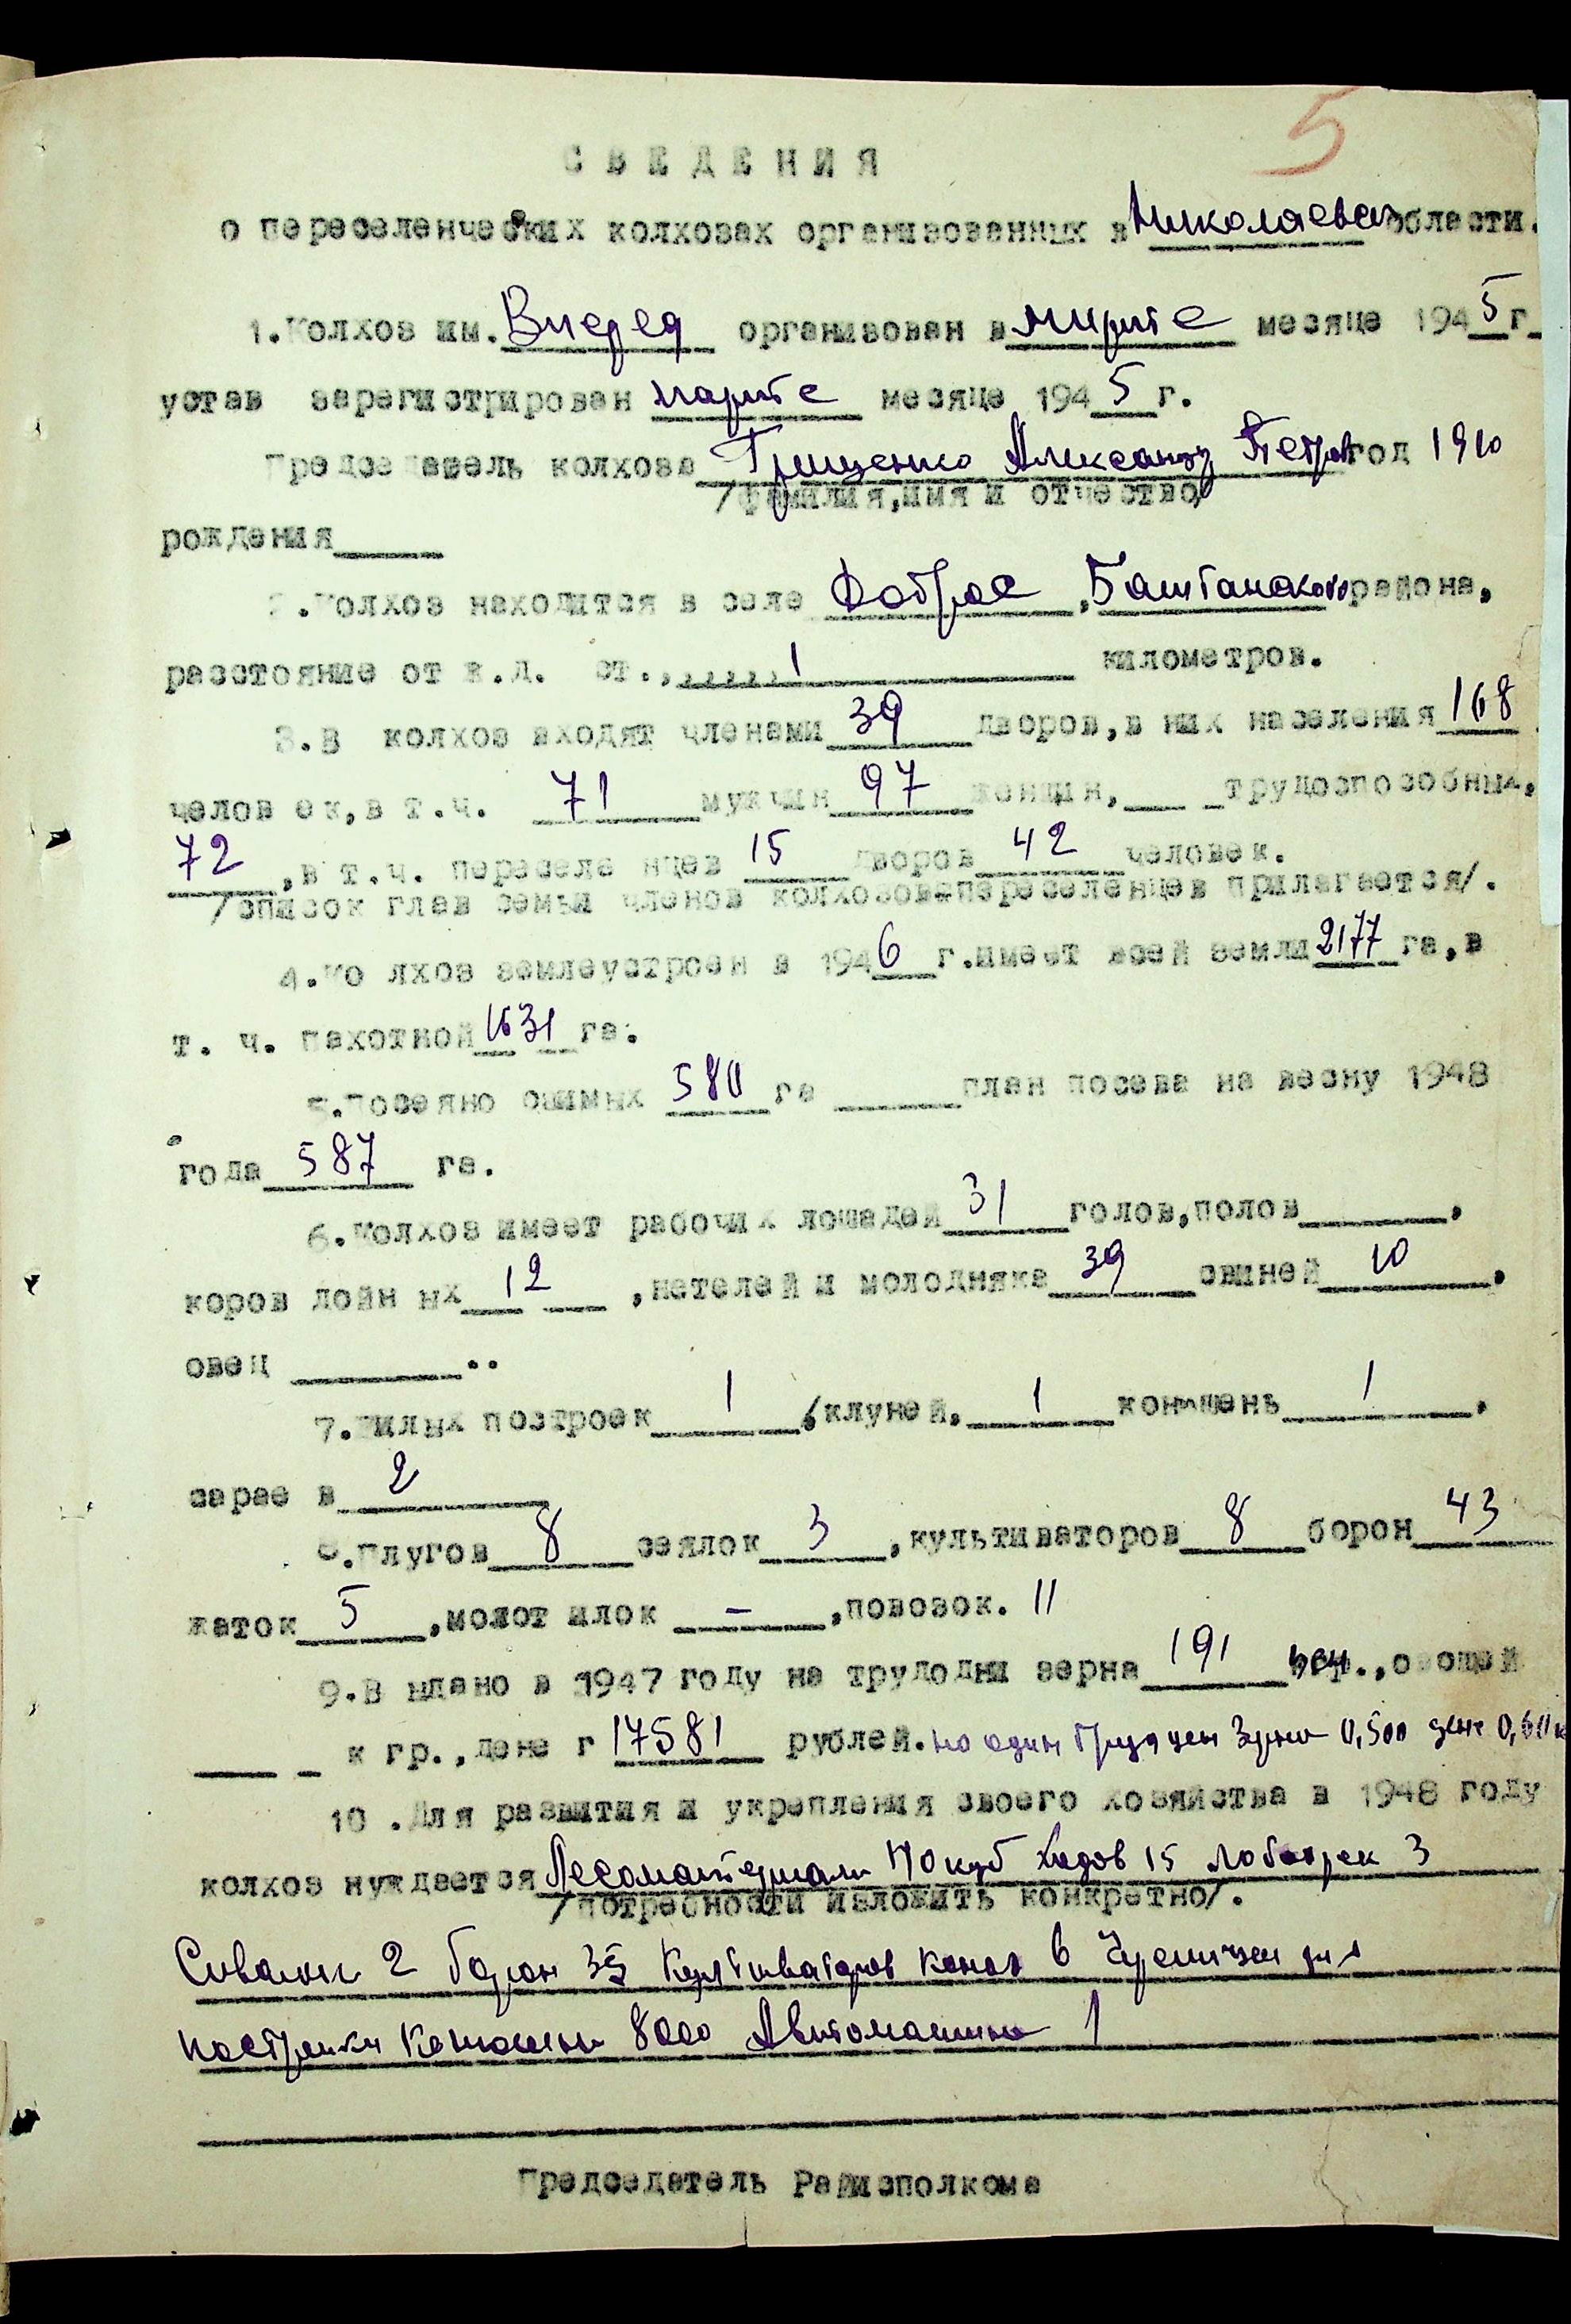 5
СВЕДЕНИЯ
о переселенческих колхозах организованных в Николаевск области.
1.Колхоз им. Вперед организован в марте месяце 1945 г
устав зарегистрирован марте месяце 1945 г.
Председатель колхоза Грищенко Александр Петров год 1910
/фамилия,имя и отчество/
рождения
2.Колхоз находится в селе Доброе, Баштанского района,
расстояние от ж.д. ст.,,,,,, 1 километров.
3.В колхоз входят членами 39 дворов,в них населения 168
человек,в т.ч. 71 мужчин 97 женщин, трудоспособных,
72 ,в т.ч. переселенцев 15 дворов 42 человек.
/список глав семьи членов колхозовпереселенцев прилагается/.
4.Колхоз землеустроен в 1946 г.имеет всей земли 2177 га,в
т. ч. пахотной 1631 га.
5.Посеяно озимых 580 га план посева на весну 1948
года 587 га.
6.Колхоз имеет рабочих лошадей 31 голов,полов ,
коров дойных 12 ,нетелей и молодняка 39 свиней 10 ,
овец ..
7.Жилых построек 1 ,клуней, 1 конюшень 1 ,
сарае в 2
8.Плугов 8 сеялок 3 ,культиваторов 8 борон 43
жаток 5 ,молотилок - ,повозок. 11
9.Выдано в 1947 году на трудодни зерна 191 цен.,овощей
кгр.,денег 17581 рублей. на один Труд ден Зерна 0,500 дене 0,60 к
10 .Для развития и укрепления своего хозяйства в 1948 году
колхоз нуждается Лесоматериали 70 куб Ходов 15 лобогрек 3
/потребности изложить конкретно/.
Сивалки 2 борон 35 Культиваторов конох 6 Черепици для
постройки Конюшни 8000 Автомашина 1
Председатель Райисполкома